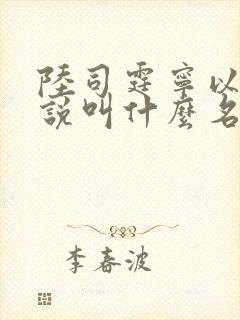 陸司霆寧以
說叫什麼名
李春波